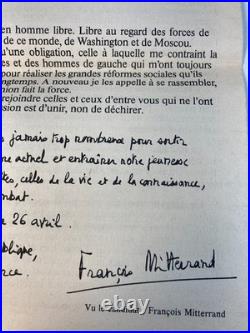 en homme libre. Libre au regard des forces de
de ce monde, de Washington et de Moscou.
u'une obligation, celle à laquelle me contraint la
s et des hommes de gauche qui m'ont toujours
pour réaliser les grandes réformes sociales qu'ils
longtemps. A nouveau je les appelle à se rassembler,
nion fait la force.
rejoindre celles et ceux d'entre vous qui ne l'ont
ssion est d'unir, non de déchirer.
s jamais trop nombreux pour sortir
me actuel et entraîner notre jeunesse
tes, celles de la vie et de la connaissance,
mbat.
e 26 avril.
blique,
ce.
François Mitterrand
Vu le candidat, François Mitterrand